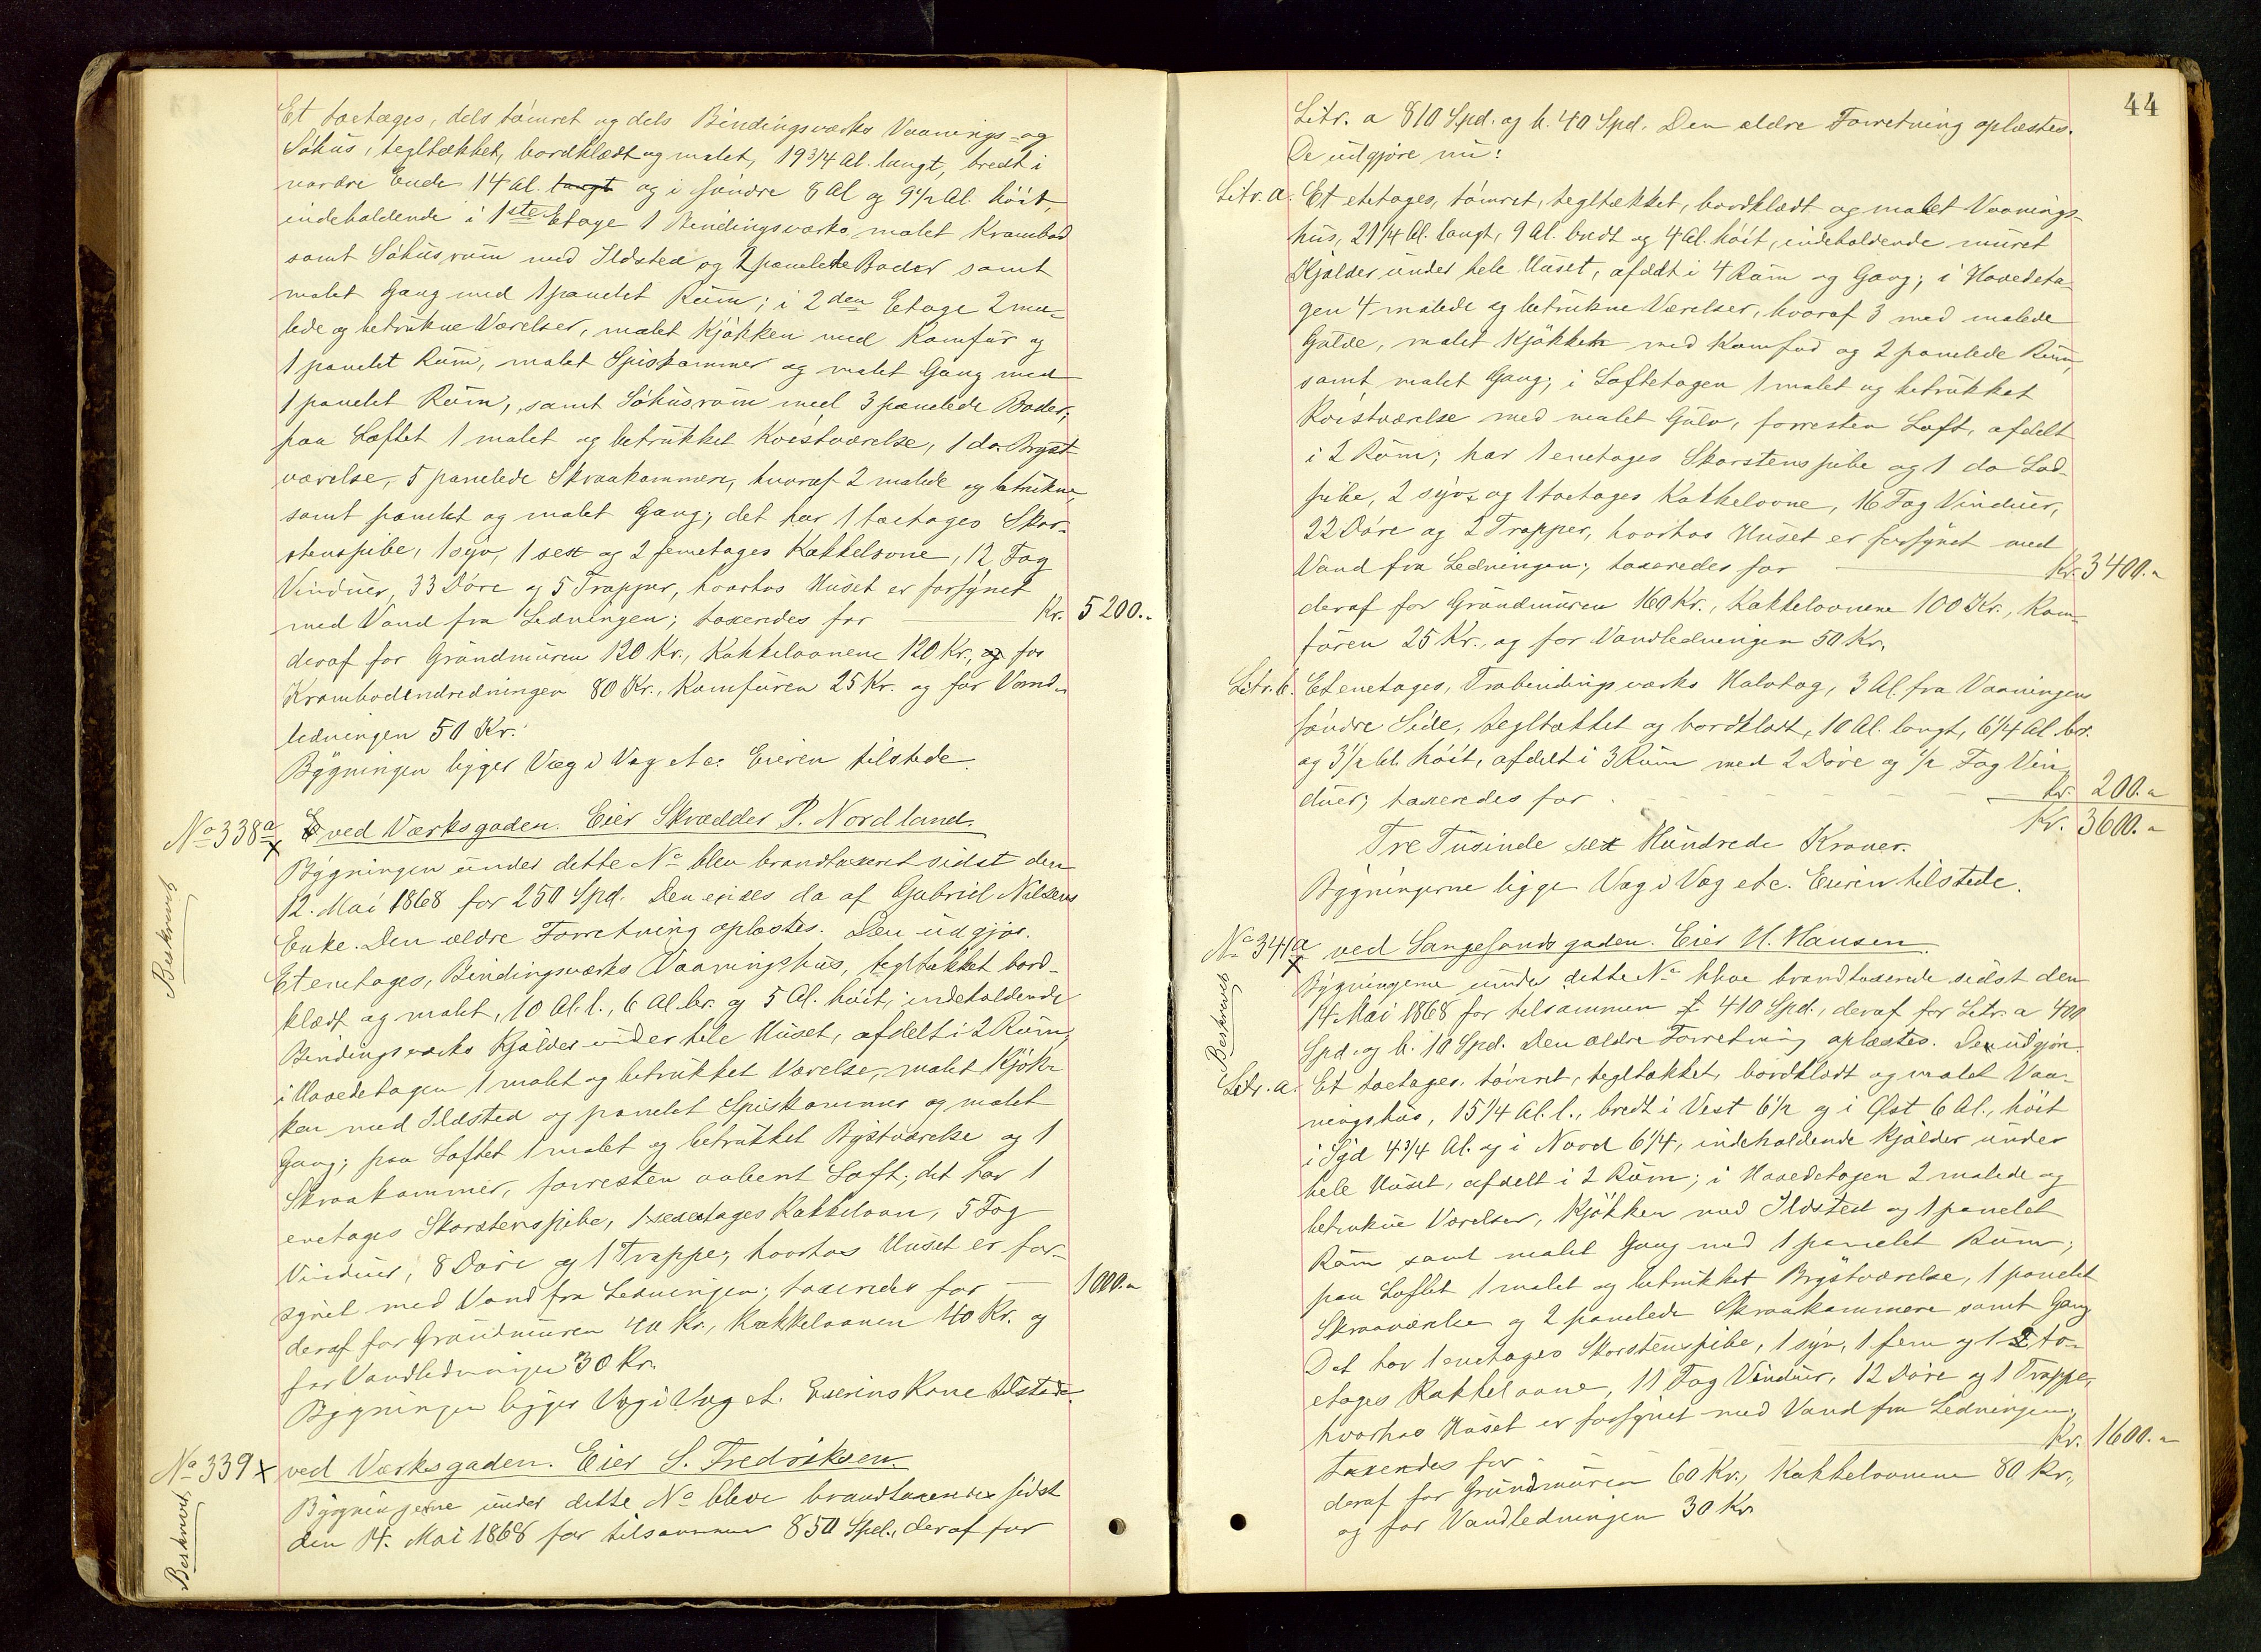 Et toetages, dels tömret og dels Bindingsværks Vaanings- og
Söhus, tegltækket, bordklædt og malet, 19 3/4 Al. langt, bredt i
nordre Ende 14 Al. langt og i söndre 8 Al og 9 1/2 Al. höit,
indeholdende i 1ste Etage 1 Bindingsværks malet Krambod
samt Söhusrum med Ildsted og 2 panelede Boder samt
malet Gang med 1 panelet Rum; i 2den Etage 2 ma-
lede og betrukne Værelser, malet Kjökken med Komfur og
1 panelet Rum, malet Spiskammer og malet Gang med
1 panelet Rum, samt Söhusrum med 3 panelede Boder;
paa Loftet 1 malet og betrukket Kvistværelse, 1 do. Bryst-
værelse, 5 panelede Skraakammere, hvoraf 2 malede og betrukne,
samt panelet og malet Gang; det har 1 toetages Skor-
stenspibe, 1 syv, 1 sex og 2 femetages Kakkelovne, 12 Fag
Vinduer, 33 Döre og 5 Trapper, hvorhos Huset er forsynet
med Vand fra Ledningen; taxeredes for Kr. 5200.-
deraf for Grundmuren 120 Kr., Kakkelovnene 120 Kr., og for
Krambodindredningen 80 Kr., Komfuren 25 Kr. og for Vand-
ledningen 50 Kr.
Bygningen ligger Væg i Væg etc. Eieren tilstede.
No 338a x ved Værksgaden. Eier Skrædder P. Nordland.
Beskrevet
Bygningen under dette No blev brandtaxeret sidst den
12. Mai 1868 for 250 Spd. Den eiedes da af Gabriel Nilsens
Enke. Den ældre Forretning oplæstes. Den udgjör.
Et enetages, Bindingsværks Vaaningshus, tegltækket bord-
klædt og malet, 10 Al. l., 6 Al. br. og 5 Al. höit, indeholdende
Bindingsværks Kjælder under hele Huset, afdelt i 2 Rum;
i Hovedetagen 1 malet og betrukket Værelse, malet Kjök-
ken med Ildsted og panelet Spiskammer og malet
Gang; paa Loftet 1 malet og betrukket Brystværelse og 1
Skraakammer, forresten aabent Loft; det har 1
enetages Skorstenspibe, 1 sexetages Kakkelovn, 5 Fag
Vinduer, 8 Döre og 1 Trappe; hvorhos Huset er for-
synet med Vand fra Ledningen; taxeredes for 1000.-
deraf for Grundmuren 40 Kr., Kakkelovnen 40 Kr. og
for Vandledningen 30 Kr.
Bygningen ligger Væg i Væg et. Eierens Kone tilstede.
No 339 x ved Værksgaden. Eier S. Fredriksen.
Beskrevet
Bygningerne under dette No bleve brandtaxerede sidst
den 14. Mai 1868 for tilsammen 850 Spd., deraf for
44
Litr. a 810 Spd. og b. 40 Spd. Den ældre Forretning oplæstes.
De udgjöre nu:
Litr. a. Et etetages, tömret, tegltækket, bordklædt og malet Vaanings-
hus, 21 1/4 Al. langt, 9 Al. bredt og 4 Al. höit, indeholdende muret
Kjælder under hele Huset, afdelt i 4 Rum og Gang; i Hovedeta-
gen 4 malede og betrukne Værelser, hvoraf 3 med malede
Gulve, malet Kjökken med Komfur og 2 panelede Rum,
samt malet Gang; i Loftetagen 1 malet og betrukket
Kvistværelse med malet Gulv, forresten Loft, afdelt
i 2 Rum; har 1 enetages Skorstenspibe og 1 do Lod-
pibe, 2 syv- og 1 toetages Kakkelovne, 16 Fag Vinduer,
22 Döre og 2 Trapper, hvorhos Huset er forsynet med
Vand fra Ledningen; taxeredes for Kr. 3400.-
deraf for Grundmuren 160 Kr., Kakkelovnene 100 Kr., Kom-
furen 25 Kr. og for Vandledningen 50 Kr.
Litr. b. Et enetages, Træbindingsværks Halvtag, 3 Al. fra Vaaningens
söndre Side, tegltækket og bordklædt, 10 Al. langt, 6 1/4 Al. br.
og 3 1/2 Al. höit, afdelt i 3 Rum med 2 Döre og 1/2 Fag Vin-
duer; taxeredes for Kr. 200.-
Kr. 3600.-
Tre Tusinde sex Hundrede Kroner.
Bygningerne ligge Væg i Væg etc. Eieren tilstede.
No 341a x ved Langesands gaden. Eier H. Hansen.
Beskrevet
Bygningerne under dette No bleve brandtaxerede sidst den
14. Mai 1868 for tilsammen 410 Spd., deraf for Litr. a 400
Spd. og b. 10 Spd. Den ældre Forretning oplæstes. De udgjöre.
Litr. a. Et toetages, tömret, tegltækket, bordklædt og malet Vaa-
ningshus, 15 1/4 Al. l., bredt i Vest 6 1/2 og i Øst 6 Al., höit
i Syd 4 3/4 Al. og i Nord 6 1/4, indeholdende Kjælder under
hele Huset, afdelt i 2 Rum; i Hovedetagen 2 malede og
betrukne Værelser, Kjökken med Ildsted og 1 panelet
Rum samt malet Gang med 1 panelet Rum;
paa Loftet 1 malet og betrukket Brystværelse, 1 panelet
Skraaværelse og 2 panelede Skraakammere samt Gang
Det har 1 enetages Skorstenspibe, 1 syv, 1 fem og 1 to-
etages Kakkelovne, 11 Fag Vinduer, 12 Döre og 1 Trappe,
hvorhos Huset er forsynet med Vand fra Ledningen,
taxeredes for Kr. 1600.-
deraf for Grundmuren 60 Kr., Kakkelovnene 80 Kr.,
og for Vandledningen 30 Kr.